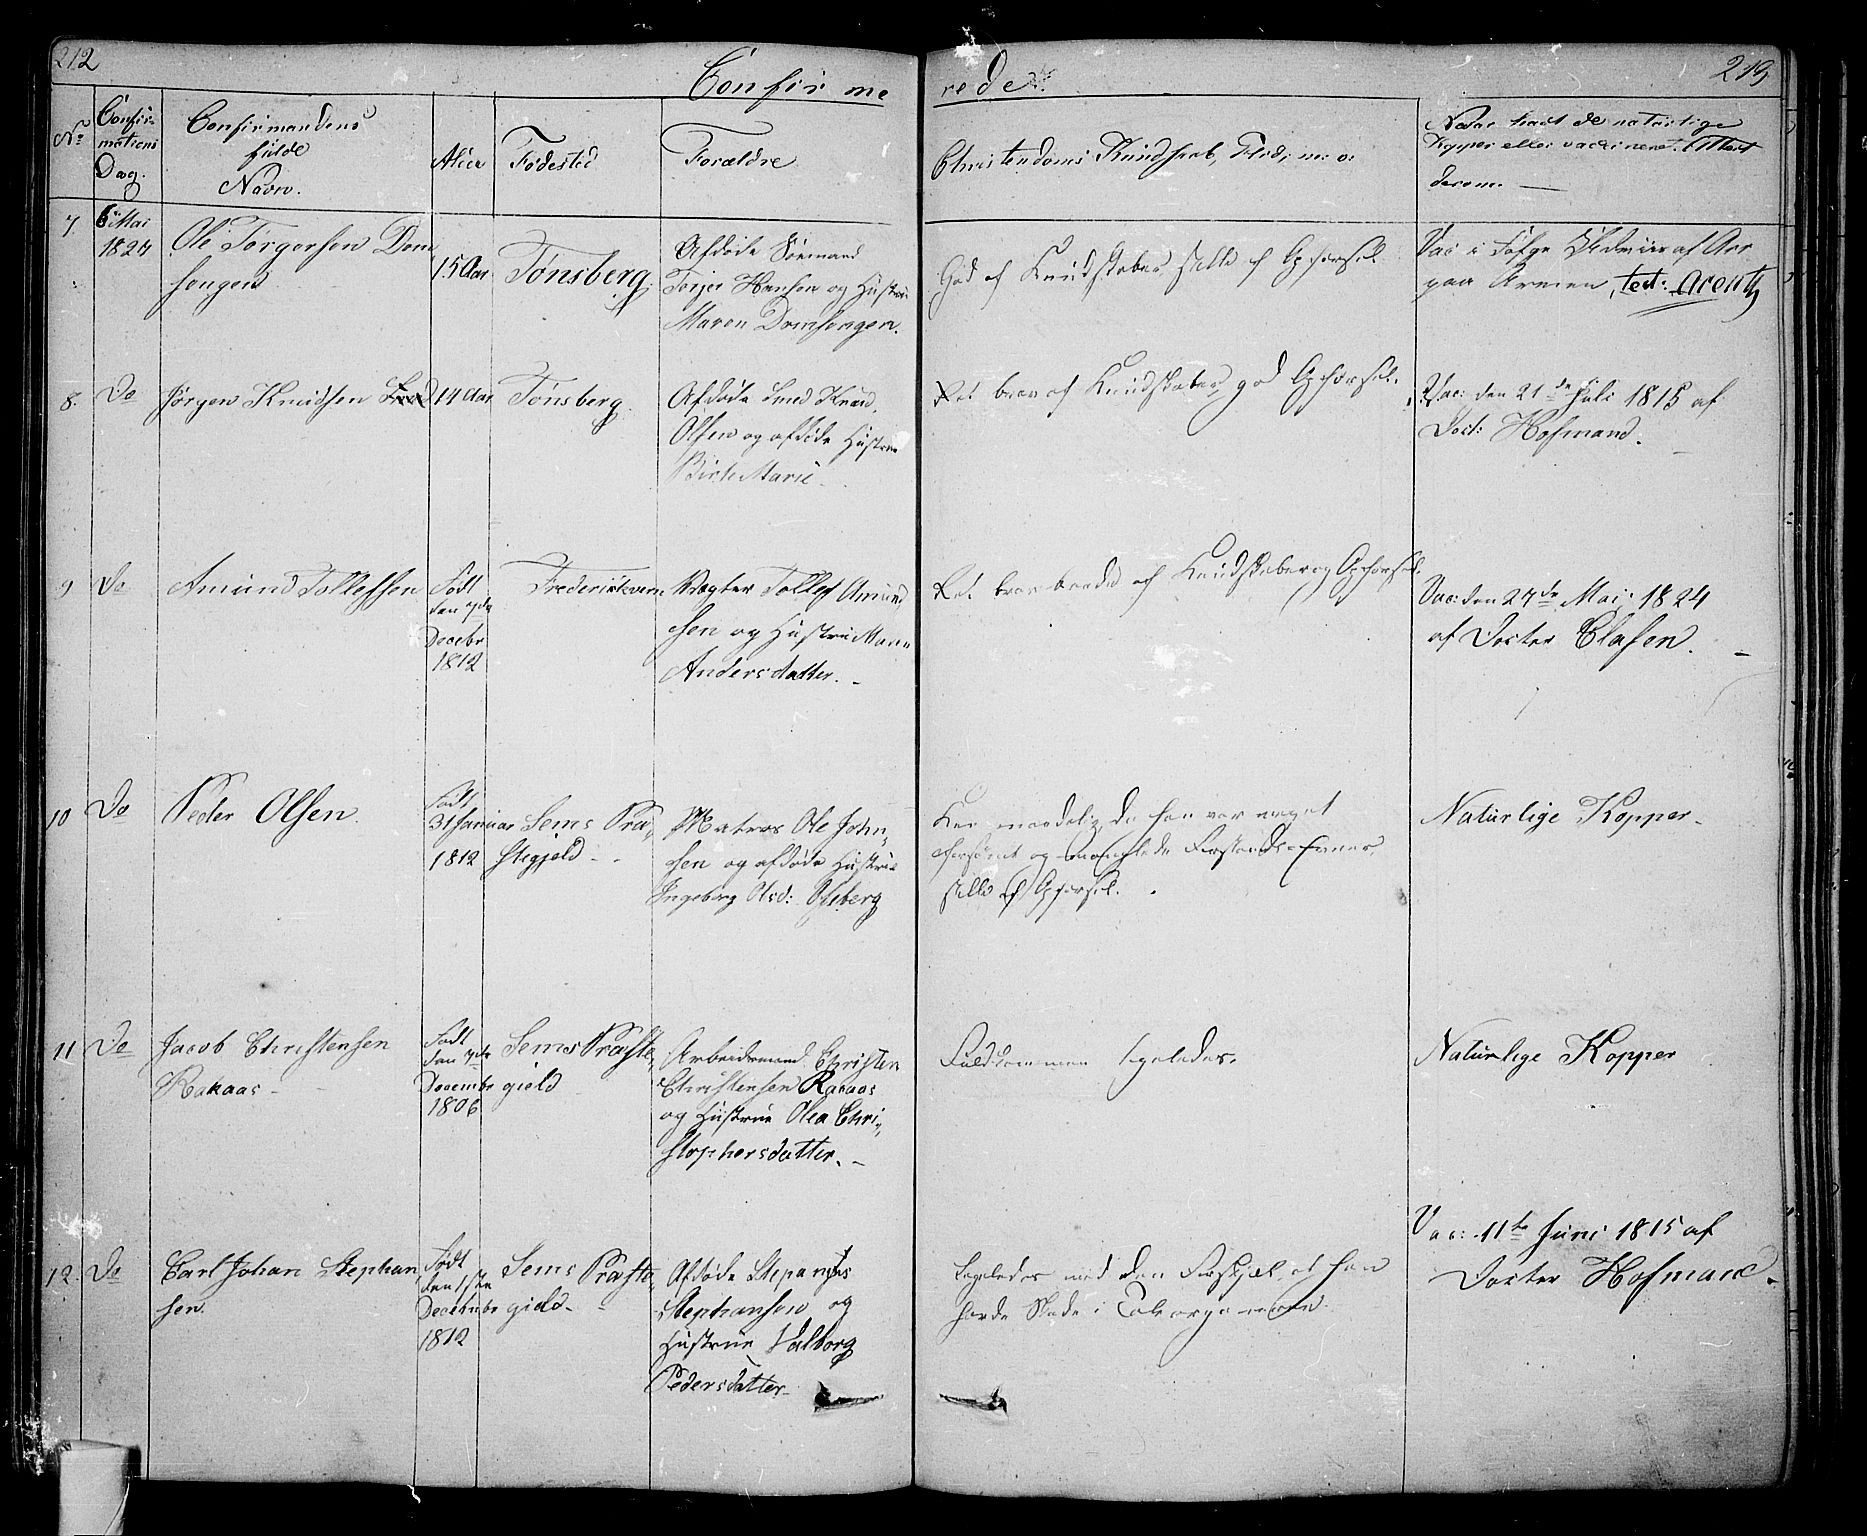 212
Confirme
rede
213
No
Confir-
mations
Dag.
Confirmandens
fulde
Navn.
Alder
Fødested
Forældre
Christendoms Kundskab, Flid, m: v:
Naar havt de naturlige
Kopper eller vaccineret. Attest
derom.
7
6 Mai
1824
Ole Torgersen Dom
sengen
15 Aar
Tønsberg.
Afdøde Søemand
Torjer Hansen og Hustrue
Maren Domsengen.
God af Kundskaber, stille af Opførsel
Vac: i Følge
paa Armen, test: Arentz
8.
Do
Jørgen Knudsen
14 Aar
Tønsberg.
Afdøde Smed Knud
Olsen og afdøde Hustrue
Birte Marie
Ret brav af Kundskaber, god Opførsel.
Vac: den 21de Juli 1815 af
Doct: Hofmand.
9
Do
Amund Tollefsen
Født
den 7de
Decebr
1812
Frederiksværn
Vægter Tollef Amund
sen og Hustrue Maren
Andersdatter.
Ret brav baade af Kundskaber og Opførsel.
Vac: den 27de Mai 1824
af Docter Clasen.
10
Do
Peder Olsen.
Født
31 Januar
1812
Sems Præ-
stegjeld
Matros Ole John-
sen og afdøde Hustrue
Ingeborg Olsd: Olsberg
Kun maadelig, da han var meget
forsømt og manglede Forstands-Evner,
stille af Opførsel.
Naturlige Kopper
11
Do
Jacob Christensen
Rakaas
Født
den 7de
Decembr
1806
Sems Præste-
gield
Arbeidsmand Christen
Christensen Rakaas
og Hustrue Olea Chri-
stophersdatter.
Fuldkommen ligeledes.
Naturlige Kopper
12.
Do
Carl Johan Stephan
sen.
Født
den 1ste
Decembr
1812
Sems Præste-
gield
Afdøde
Stephansen og
Hustrue Valborg
Pedersdatter
Ligeledes med den Forskjel, at han
havde Skade i
Vac: 11te Juni 1815 af
Docter Hofmand.